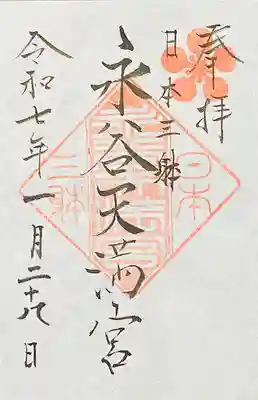 奉拝
日本三躰
永谷天満宮
令和七年一月二十八日
日本
三躰